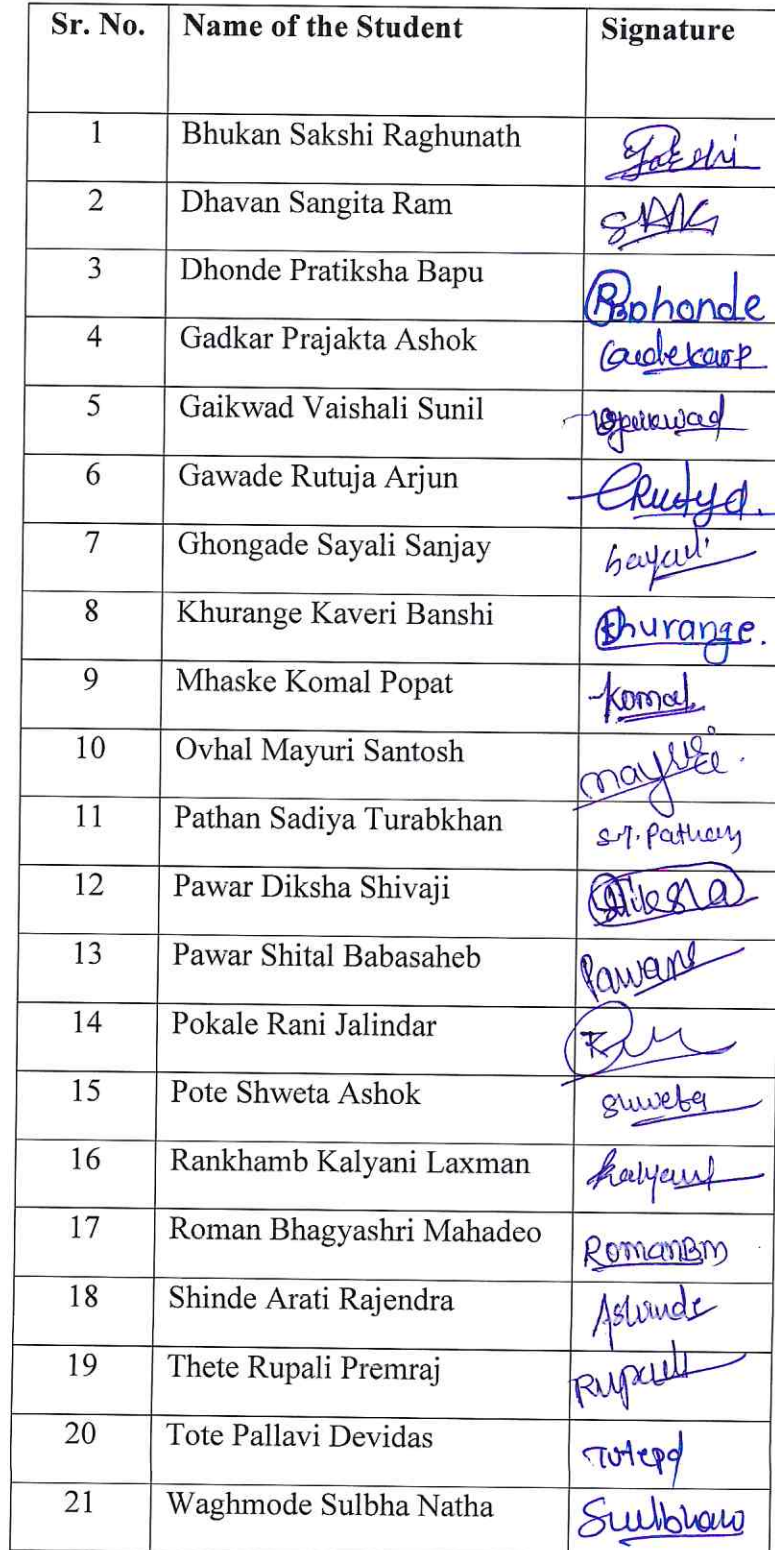 Sr. No. Name of the Student Signature
1 Bhukan Sakshi Raghunath Sakshi
2 Dhavan Sangita Ram
3 Dhonde Pratiksha Bapu Dhonde
4 Gadkar Prajakta Ashok
5 Gaikwad Vaishali Sunil
6 Gawade Rutuja Arjun
7 Ghongade Sayali Sanjay Sayali
8 Khurange Kaveri Banshi Khurange.
9 Mhaske Komal Popat Komal
10 Ovhal Mayuri Santosh
11 Pathan Sadiya Turabkhan S.T. Pathan
12 Pawar Diksha Shivaji
13 Pawar Shital Babasaheb
14 Pokale Rani Jalindar
15 Pote Shweta Ashok Shweta
16 Rankhamb Kalyani Laxman Kalyani
17 Roman Bhagyashri Mahadeo RomanBM
18 Shinde Arati Rajendra AShinde
19 Thete Rupali Premraj Rupali
20 Tote Pallavi Devidas Totepd
21 Waghmode Sulbha Natha